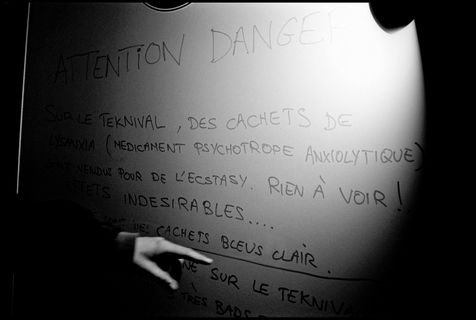 ATTENTION DANGER
SUR LE TEKNIVAL, DES CACHETS DE
LYSANXIA (MEDICAMENT PSYCHOTROPE ANXIOLYTIQUE)
SONT VENDUS POUR DE L'ECSTASY. RIEN À VOIR !
INDESIRABLES....
CACHETS BLEUS CLAIR.
SUR LE TEKNIVAL
TRÈS BADS